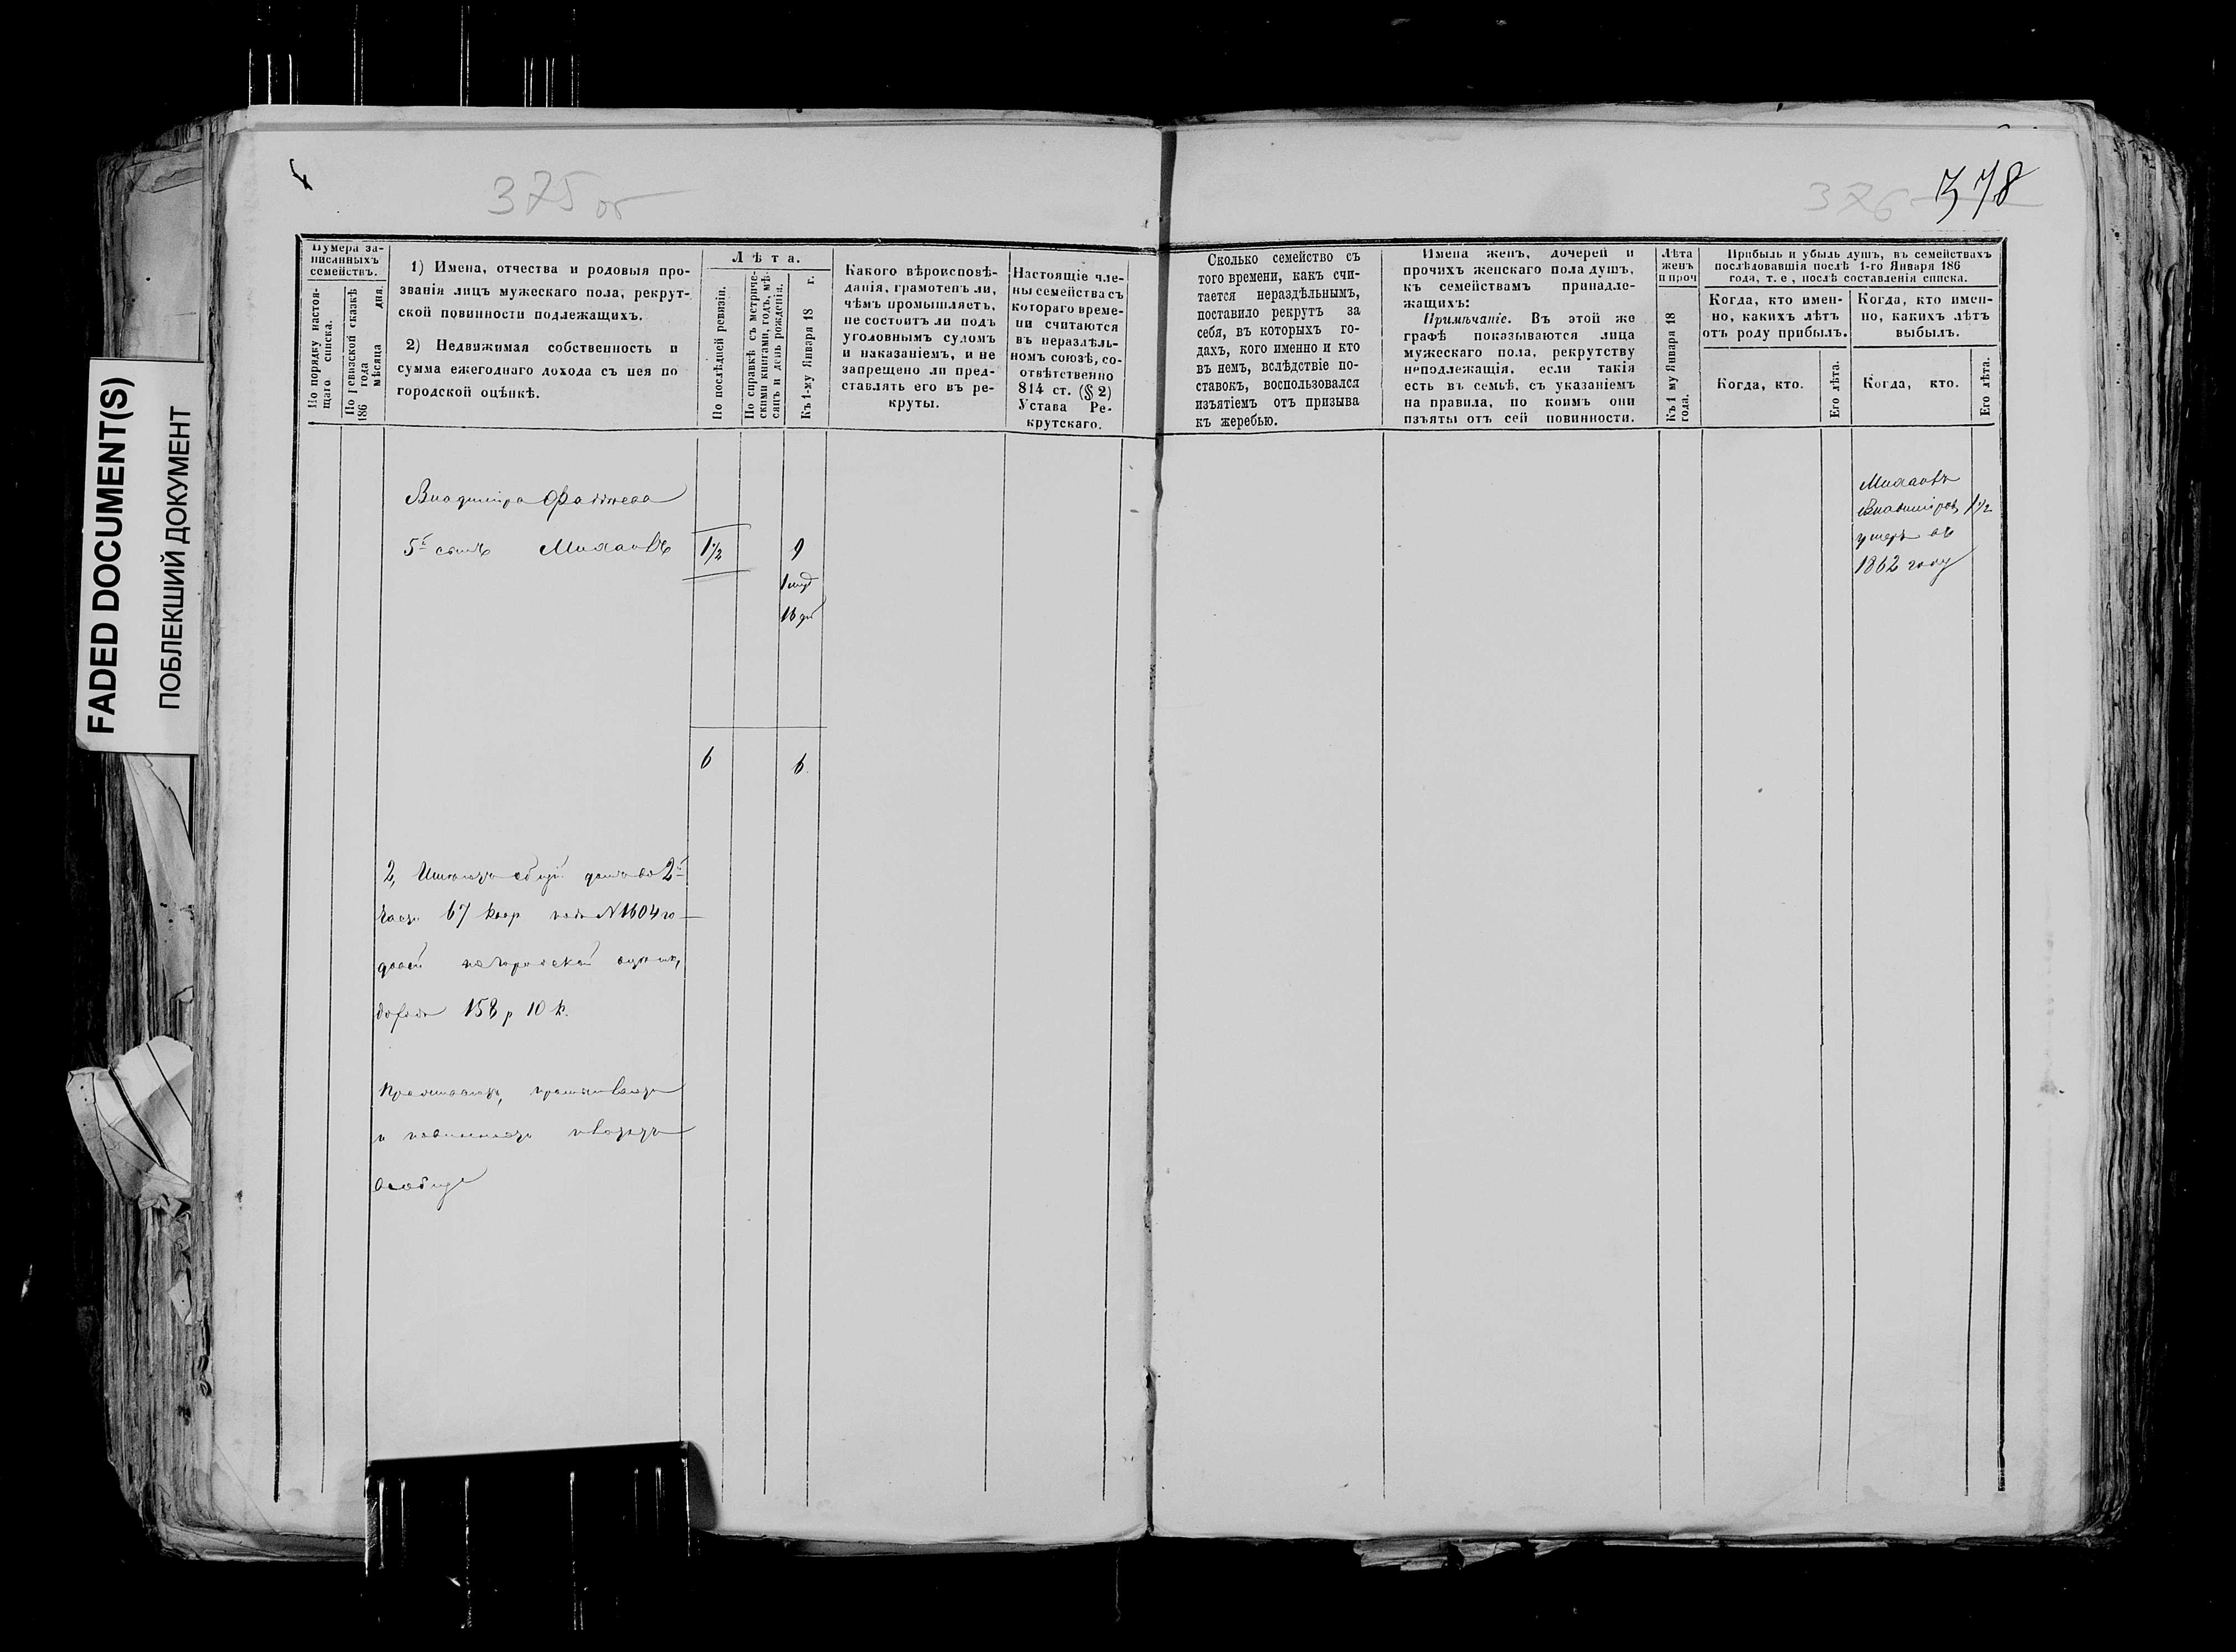 FADED DOCUMENT(S)
ПОБЛЕКШИЙ ДОКУМЕНТ
375 об
376
378
Нумера за-
писанныхъ
семействъ.
По порядку настоя-
щаго списка.
По ревизской сказкѣ
186 года
мѣсяца дня.
1) Имена, отчества и родовыя про-
званія лицъ мужескаго пола, рекрут-
ской повинности подлежащихъ.
2) Недвижимая собственность и
сумма ежегоднаго дохода съ нея по
городской оцѣнкѣ.
Лѣта.
По послѣдней ревизіи.
По справкѣ съ метриче-
скими книгами, годъ, мѣ-
сяцъ и день рожденія.
Къ 1-му Января 18 г.
Какого вѣроисповѣ-
данія, грамотенъ ли,
чѣмъ промышляетъ,
не состоитъ ли подъ
уголовнымъ судомъ
и наказаніемъ, и не
запрещено ли пред-
ставлять его въ ре-
круты.
Настоящіе чле-
ны семейства съ
котораго време-
ни считаются
въ нераздѣль-
номъ союзѣ, со-
отвѣтственно
814 ст. (§ 2)
Устава Ре-
крутскаго.
Сколько семейство съ
того времени, какъ счи-
тается нераздѣльнымъ,
поставило рекрутъ за
себя, въ которыхъ го-
дахъ, кого именно и кто
въ немъ, вслѣдствіе по-
ставокъ, воспользовался
изъятіемъ отъ призыва
къ жеребью.
Имена женъ, дочерей и
прочихъ женскаго пола душъ,
къ семействамъ принадле-
жащихъ:
Примѣчаніе. Въ этой же
графѣ показываются лица
мужескаго пола, рекрутству
неподлежащія, если такія
есть въ семьѣ, съ указаніемъ
на правила, по коимъ они
изъяты отъ сей повинности.
Лѣта
женъ
и проч
Къ 1 му Января 18
года.
Прибыль и убыль душъ, въ семействахъ
послѣдовавшія послѣ 1-го Января 186
года, т. е., послѣ составленія списка.
Когда, кто имен-
но, какихъ лѣтъ
отъ роду прибылъ.
Когда, кто имен-
но, какихъ лѣтъ
выбылъ.
Когда, кто.
Его лѣта.
Когда, кто.
Его лѣта.
Владиміра
5й сынъ 1/2 9
16 дн
6 6
2, общій домъ во 2й
67 квар подъ N 1604 го
городской
158 р 10 к.
и повинности
Владиміровъ 1 1/2
умеръ въ
1862 году